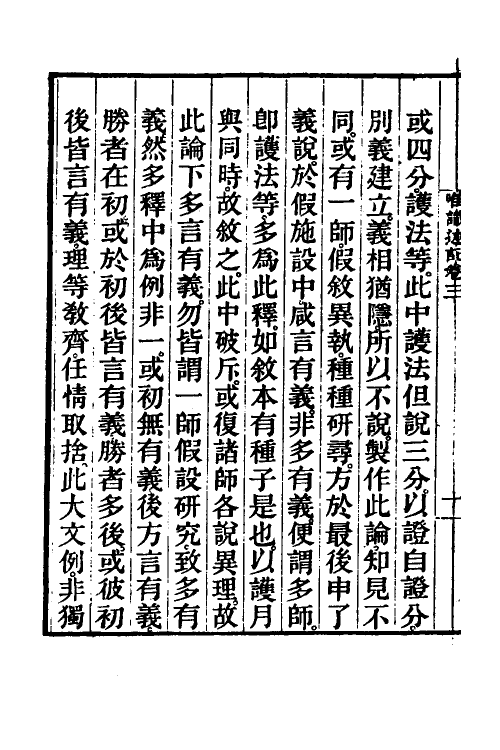 唯識述記卷三
十
或四分。護法等。此中護法但說三分。以證自證分。
別義建立。義相猶隱。所以不說。製作此論。知見不
同。或有一師。假敘異執。種種研尋。方於最後申了
義說。於假施設中。咸言有義。非多有義。便謂多師。
卽護法等多為此釋。如敘本有種子是也。以護月
與同時。故敘之。此中破斥。或復諸師各說異理。故
此論下多言有義。勿皆謂一師假設硏究。致多有
義。然多釋中為例非一。或初無有義後方言有義。
勝者在初。或於初後皆言有義勝者多後。或彼初
後皆言有義。理等教齊。任情取捨。此大文例。非獨